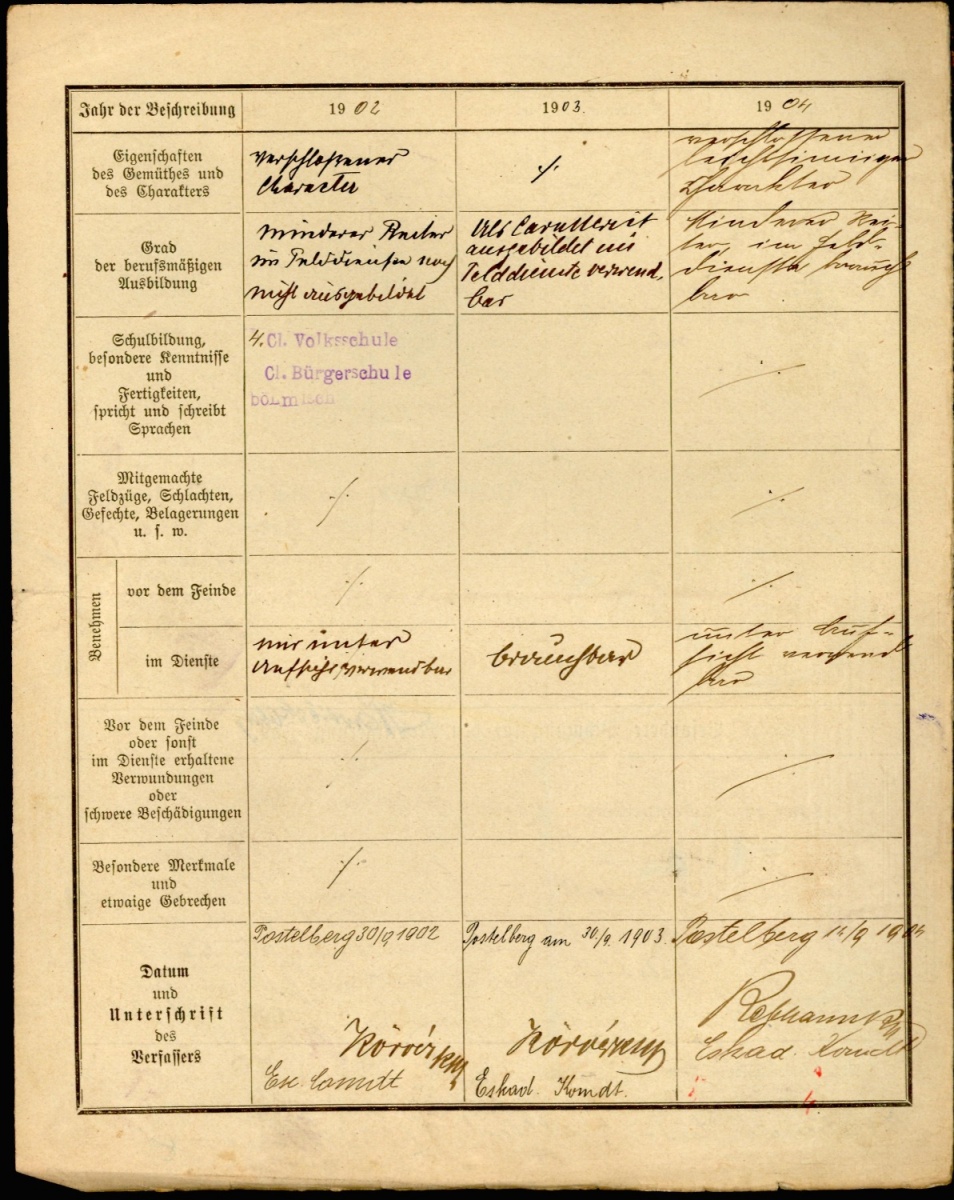 Jahr der Beschreibung
1902
1903.
1904
Eigenschaften
des Gemüthes und
des Charakters
verschloßener
Character
./.
verschlossener
leichtsinniger
Charakter
Grad
der berufsmäßigen
Ausbildung
minderer Reiter
im Felddienste noch
nicht ausgebildet
Als Cavallerist
ausgebildet im
Felddienste verwend-
bar
Minderer Rei-
ter, im Feld-
dienste brauch
bar
Schulbildung,
besondere Kenntnisse
und
Fertigkeiten,
spricht und schreibt
Sprachen
4. Cl. Volksschule
Cl. Bürgerschule
böhmisch
./.
Mitgemachte
Feldzüge, Schlachten,
Gefechte, Belagerungen
u. s. w.
./.
./.
Benehmen
vor dem Feinde
./.
./.
im Dienste
nur unter
Aufsicht verwendbar
brauchbar
unter Auf-
sicht verwend
bar
Vor dem Feinde
oder sonst
im Dienste erhaltene
Verwundungen
oder
schwere Beschädigungen
./.
./.
Besondere Merkmale
und
etwaige Gebrechen
./.
./.
Datum
und
Unterschrift
des
Verfassers
Postelberg 30/9 1902
Esk. Comdt
Postelberg am 30/9. 1903.
Eskad. Komdt.
Postelberg /9 1904
Eskad. Komdt